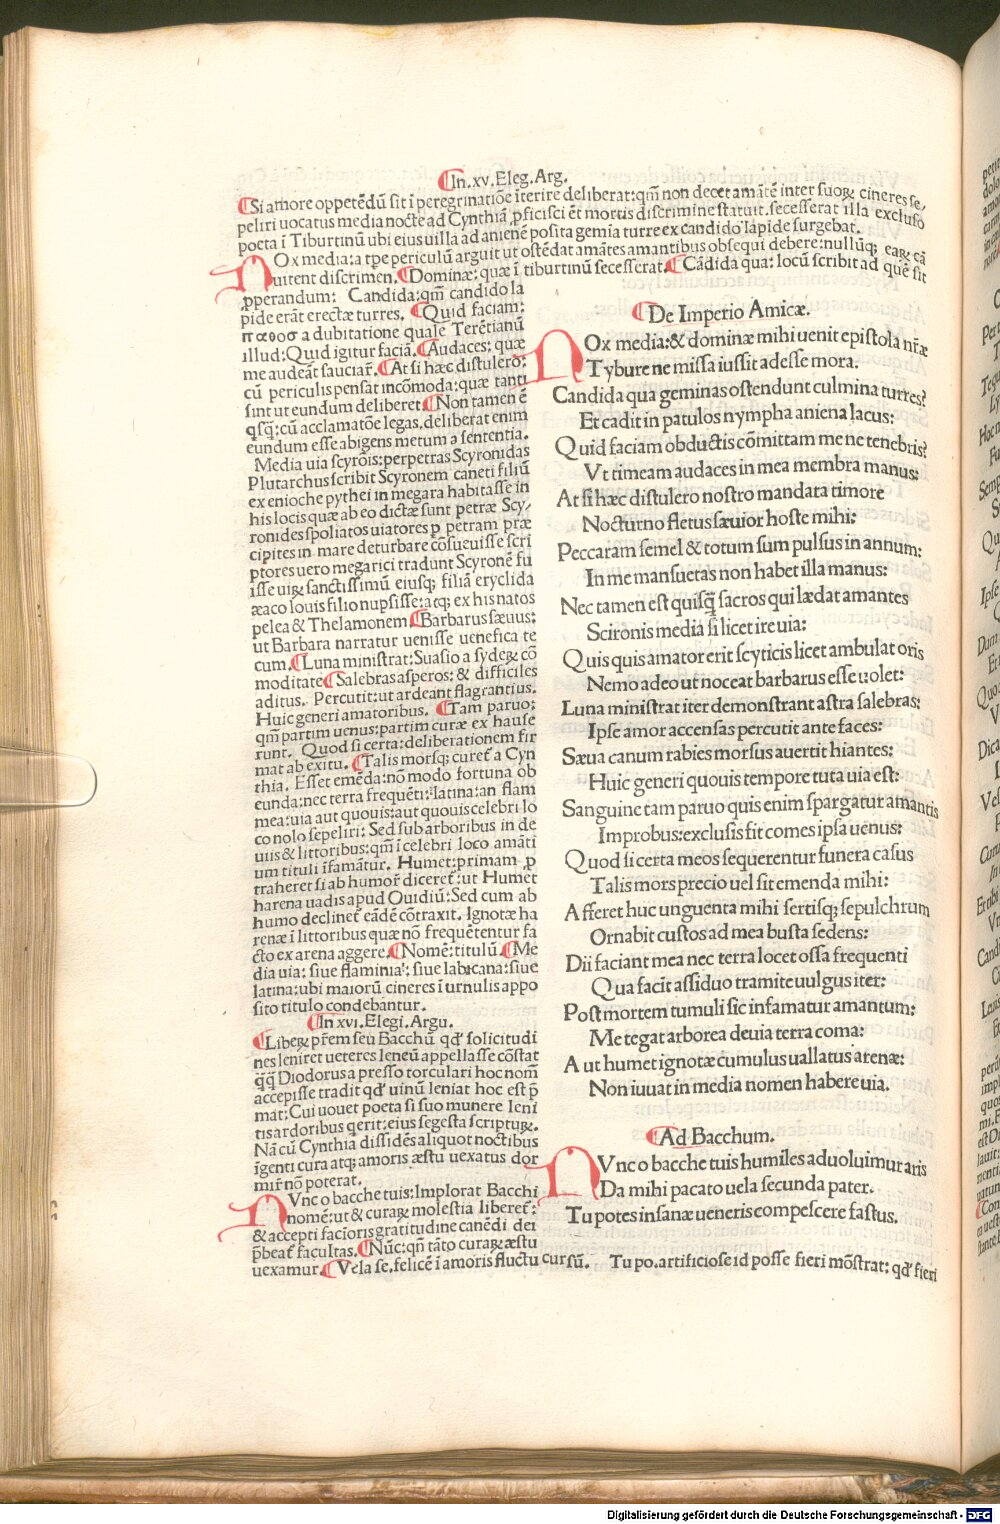 ¶In.xv.Eleg.Arg.
¶Si amore oppetẽdũ sit ĩ peregrinatiõe ĩterire deliberat:qm̃ non decet amãtẽ inter suoꝝ cineres se,
peliri uocatus media nocte ad Cynthiã ꝓficisci ẽt mortis discrimine statuit.secesserat illa exclusó
poeta ĩ Tiburtinũ ubi eius uilla ad anienẽ posita gemia turre ex candido lapide surgebat.
NOx media:a tꝑe periculũ arguit ut ostẽdat amãtes amantibus obsequi debere:nullũqꝫ eaꝝ cã
uitent discrimen.¶Dominæ:quæ ĩ tiburtinũ secesserat.¶Cãdida qua:locũ scribit ad quẽ sit
ꝓperandum: Candida:qm̃ candido la
pide erãt erectæ turres. ¶Quid faciam:
παθοσ a dubitatione quale Terẽtianũ
illud:Quid igitur faciã.¶Audaces: quæ
me audeãt sauciar̃.¶At si hæc distulero:
cũ periculis pensat incõmoda:quæ tanti
sint ut eundum deliberet.¶Non tamen ẽ
qsq̃:cũ acclamatõe legas.deliberat enim
eundum esse abigens metum a sententia.
Media uia scyrõis:perpetras Scyronidas
Plutarchus scribit Scyronem caneti filiũ
ex enioche pythei in megara habitasse in
his locis quæ ab eo dictæ sunt petræ Scy,
ronides spoliatos uiatores ꝑ petram præ
cipites in mare deturbare cõsueuisse scri
ptores uero megarici tradunt Scyronẽ fu
isse uiꝝ sanctissimũ eiusqꝫ filiã eryclida
æaco Iouis filio nupsisse:atqꝫ ex his natos
pelea & Thelamonem ¶Barbarus sæuus:
ut Barbara narratur uenisse uenefica te
cum.¶Luna ministrat:Suasio a syderꝫ cõ
moditate¶Salebras asperos: & difficiles
aditus. Percutit:ut ardeant flagrantius.
Huic generi amatoribus. ¶Tam paruo:
qm̃ partim uenus:partim curæ ex hause
runt. Quod si certa:deliberationem fir
mat ab exitu.¶Talis morsqꝫ curet̃ a Cyn
thia. Esset emẽda:nõ modo fortuna ob
eunda:nec terra frequẽti:latina:an flami
mea:uia aut quouis:aut quouis celebri lo
co nolo sepeliri: Sed sub arboribus in de
uiis & littoribus:qm̃ ĩ celebri loco amãti
um tituli ĩfamãtur. Humet:primam ꝓ
traheret si ab humor̃ diceret̃:ut Humet
harena uadis apud Ouidiũ:Sed cum ab
humo declinet̃ eãdẽ cõtraxit. Ignotæ ha
renæ ĩ littoribus quæ nõ frequẽtentur fa
cto ex arena aggere.¶Nomẽ:titulũ.¶Me
dia uia: siue flaminia: siue labicana:siue
latina:ubi maiorũ cineres ĩ urnulis appo
sito titulo condebantur.
¶In xvi.Elegi.Argu.
¶Libeꝝ pr̃em seu Bacchũ qd' solicitudĩ
nes leniret ueteres leneũ appellasse cõstat
q̃q̃ Diodorus a presso torculari hoc nom̃
accepisse tradit qd' uinũ leniat hoc est p̃
mat:Cui uouet poeta si suo munere leni
tis ardoribus qerit:eius segesta scripturꝫ.
Nã cũ Cynthia dissidẽs aliquot noctibus
ĩgenti cura atqꝫ amoris æstu uexatus dor
mir̃ nõ poterat.
NVnc o bacche tuis:Implorat Bacchi
nomẽ:ut & curaꝝ molestia liberet̃:
& accepti facĩoris gratitudine canẽdi dei
p̃beat̃ facultas.¶Nũc:qñ tãto curaꝝ æstu
uexamur.¶Vela se.felicẽ ĩ amoris fluctu cursũ. Tu po.artificiose id posse fieri mõstrat: qd' fieri
¶De Imperio Amicæ.
NOx media:& dominæ mihi uenit epistola nr̃æ
Tybure ne missa iussit adesse mora.
Candida qua geminas ostendunt culmina turres?
Et cadit in patulos nympha aniena lacus:
Quid faciam obductis cõmittam me ne tenebris?
Vt timeam audaces in mea membra manus:
At si hæc distulero nostro mandata timore
Nocturno fletus sæuior hoste mihi:
Peccaram semel & totum sum pulsus in annum:
In me mansuetas non habet illa manus:
Nec tamen est quisq̃ sacros qui lædat amantes
Scironis media si licet ire uia:
Quis quis amator erit scyticis licet ambulat oris
Nemo adeo ut noceat barbarus esse uolet:
Luna ministrat iter demonstrant astra salebras:
Ipse amor accensas percutit ante faces:
Sæua canum rabies morsus auertit hiantes:
Huic generi quouis tempore tuta uia est:
Sanguine tam paruo quis enim spargatur amantis
Improbus:exclusis fit comes ipsa uenus:
Quod si certa meos sequerentur funera casus
Talis mors precio uel sit emenda mihi:
Afferet huc unguenta mihi sertisqꝫ sepulchrum
Ornabit custos ad mea busta sedens:
Dii faciant mea nec terra locet ossa frequenti
Qua facit assiduo tramite uulgus iter:
Post mortem tumuli sic infamatur amantum:
Me tegat arborea deuia terra coma:
Aut humet ignotæ cumulus uallatus arenæ:
Non iuuat in media nomen habere uia.
¶Ad Bacchum.
NVnc o bacche tuis humiles aduoluimur aris
Da mihi pacato uela secunda pater.
Tu potes insanæ ueneris compescere fastus.
Digitalisierung gefördert durch die Deutsche Forschungsgemeinschaft - DFG